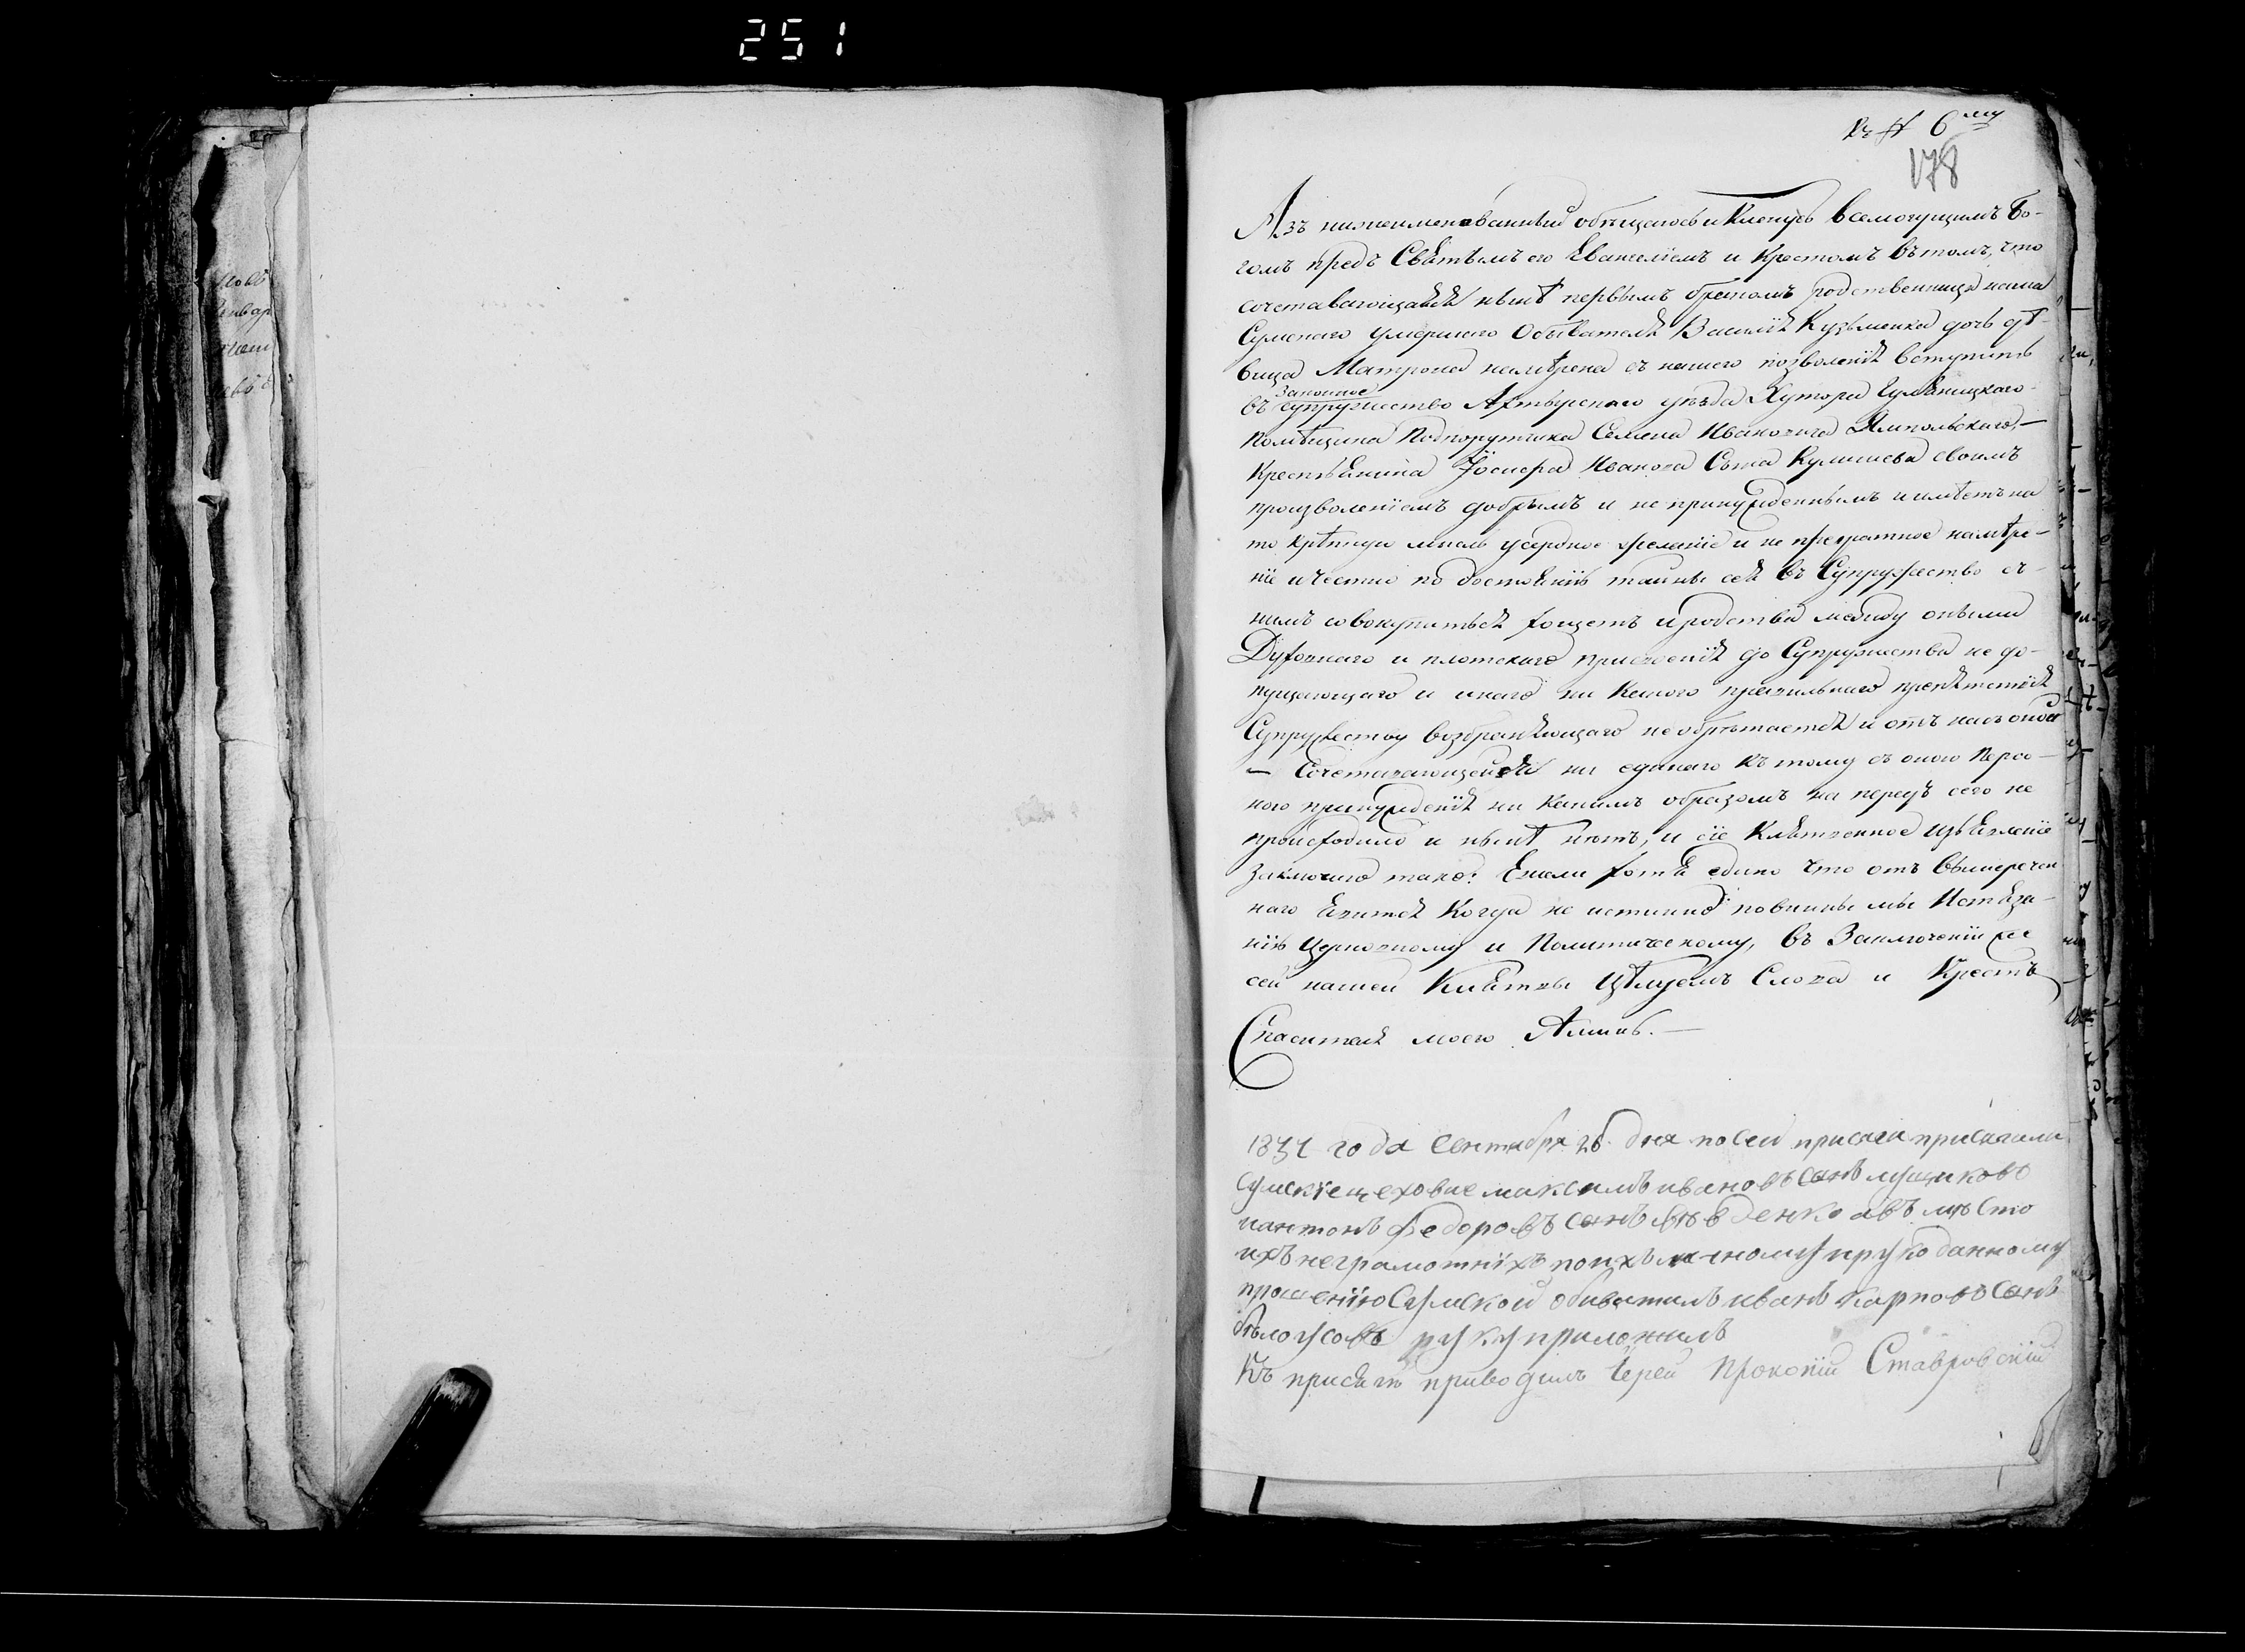 251
Къ № 6му
178
Азъ нижеименованный обѣщаюсь и Кленусь всемогущимъ Бо-
гомъ предъ Святымъ его Евангелiемъ и Крестомъ въ томъ, что
сочетавающаяся нынѣ первымъ бракомъ родственница наша
Сумскаго умершаго Обывателя Василiя Кузьменка дочь дѣ-
вица Матрона намѣрена съ нашего позволенiя вступить
законное
въ супружество Ахтырскаго уѣзда Хутора
Помѣщика Подпорутчика Семена Ивановича Ямпольскаго
Крестьянина Iосифа Иванова Сына Кулишева своимъ
произволенiемъ добрымъ и не принужденнымъ и имѣетъ на
то крѣпкую мысль усердное желанiе и не превратное намѣре-
нiе и честно по достоянiю тайны сея въ Супружество съ
нимъ совокупиться хощетъ и родства между оными
Духовнаго и плотскаго присвоенiя до Супружества не до-
пущающаго и инаго ни Какого правильнаго препятствiя
Супружеству возбраняющаго не обрѣтается и отъ насъ оной
Сочетавающейся ни единаго къ тому съ оною персо-
ною принужденiя ни Какимъ образомъ на передъ сего не
происходило и нынѣ нѣтъ, и сiе Клятвенное изъявленiе
заключаю тако: Ежели хотя едино что отъ вышеречен
наго явится Когда не истинно повинны мы Истяза-
нiю Церковному и Политическому, въ Заключенiи же
сей нашей Клятвы Цѣлуемъ Слова и Крестъ
Спасителя моего Аминь.
1831 года Сентября 26 дня по сей присяги присягали
сумскiе цеховые максимъ ивановъ сынъ мущиковъ
и антонъ федоровъ сынъ а въ мѣсто
ихъ неграмотнiхъ по ихъ личному и рукоданному
прошенiю Сумской обиватиль иванъ карповъ сынъ
бѣлоусовъ руку приложилъ
Къ присягѣ приводилъ Iерей Прокопiй Ставровскiй